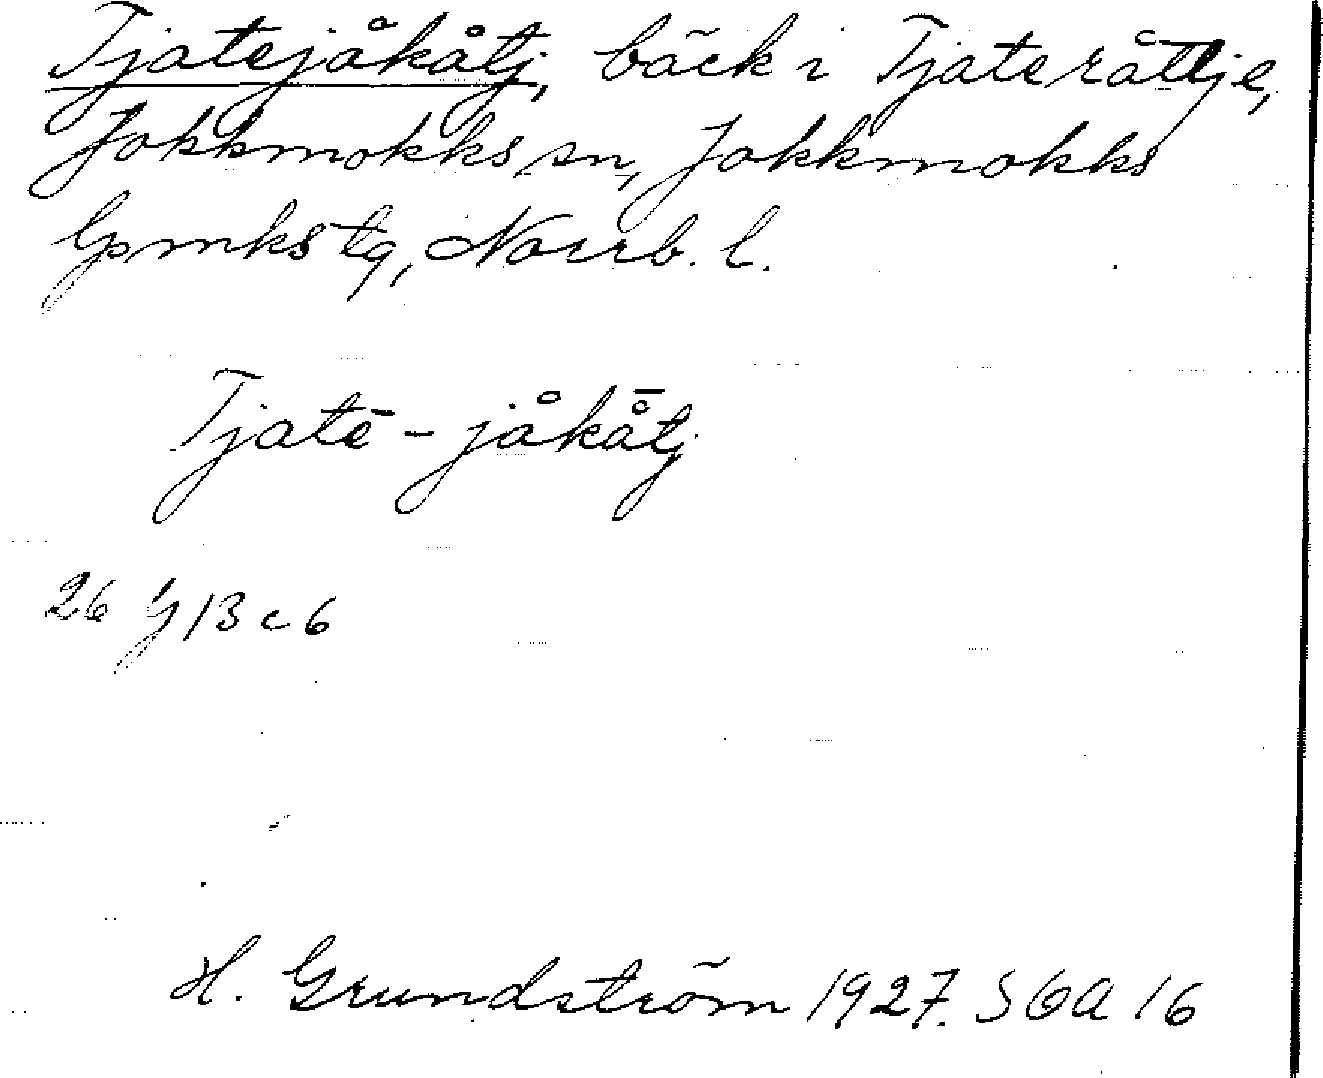 Tjatejåkåtj, bäck i Tjateråttje,
Jokkmokks sn, Jokkmokks
lpmks tg, Norrb. l.
Tjatē - jåkå̄tj
26 J 13 c 6
H. Grundström 1927. SOA 16